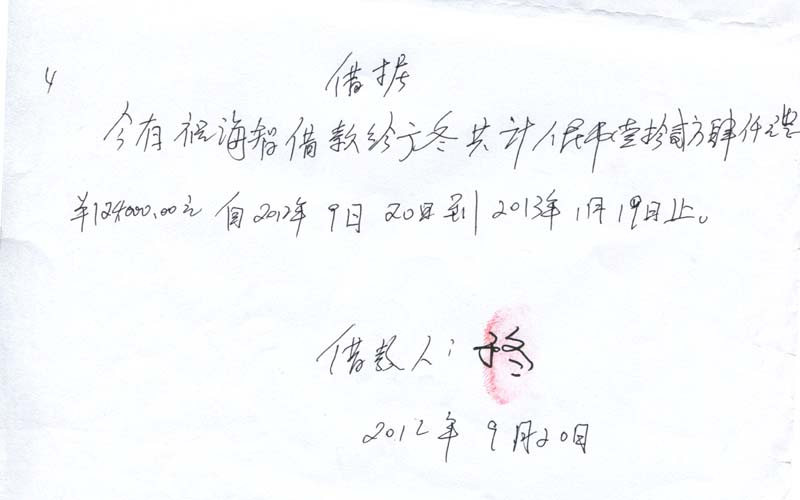 4
借据
今有祝海智借款给于冬共计人民币壹拾贰万肆仟元整
¥124000.00元 自2012年9月20日到2013年1月19日止。
借款人：于冬
2012年9月20日